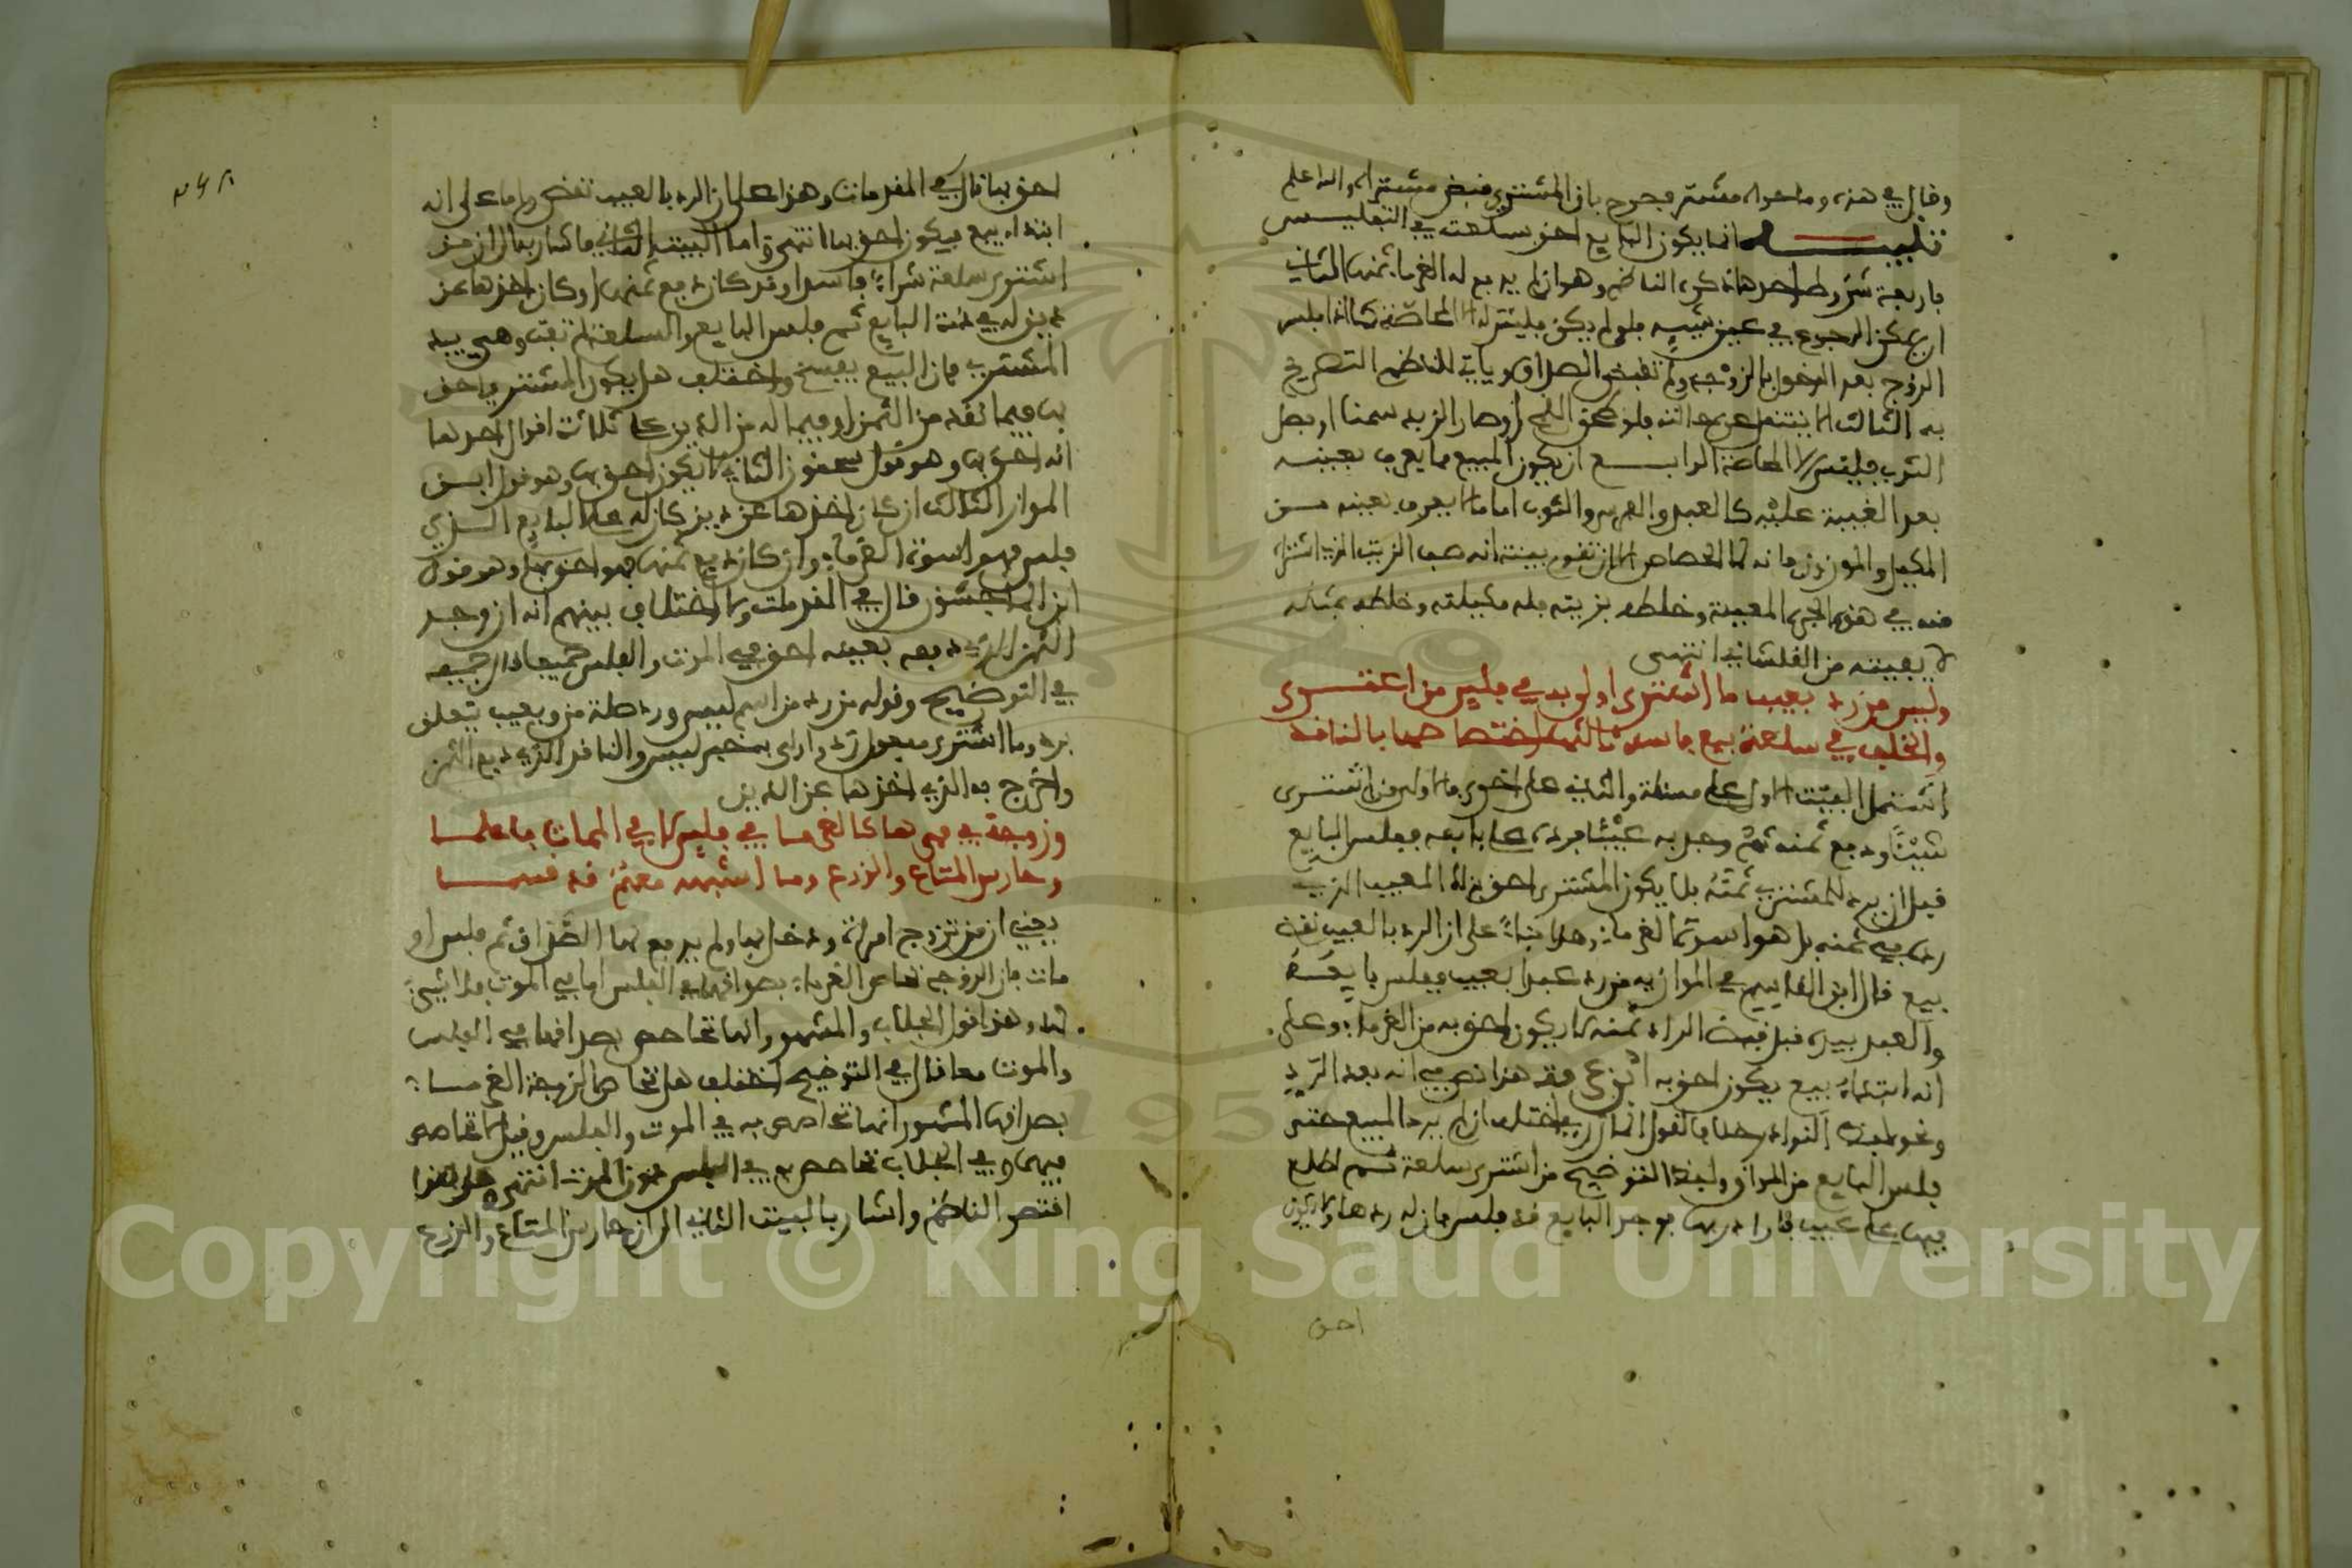 وقال في هذه وما حواه مشتر
تنبيه انما يكون البايع احق بسلعته في التفليس
باربعة شروط احدها ذكره الناظم وهو ان لم يدفع له الغرما ثمنها الثاني
ان يمكن الرجوع في عين شيه فلو لم يكن فليس له الا المحاصة كما اذا فلس
الزوج بعد الدخول بالزوجة ولم تقبض الصداق وياتي للناظم التصريح
به الثالث الا ينتقل عن حالته فلو طحن القمح او صار الزبد سمنا او فصل
الثوب فليس الا المحاصة الرابع ان يكون المبيع مما يعرف بعينه
بعد الغيبة عليه كالعبد والفرس والثوب اما ما لا يعرف بعينه من
المكيل والموزون فانه لا اختصاص الا ان تقوم بينة انه صب الزيت الذي اشتراه
منه في هذه الجرة المعينة وخلطه بزيته فله مكيلته وخلطه بمثله
لا يفيته من الفلشاني انتهى
وليس من رد بعيب ما اشترى اولى به في فلس من اعتشرى
والخلف في سلعة بيع فاسد ثالثها اختصاصها بالناقد
اشتمل البيت الاول على مسئلة والثاني على اخرى فالاولى من اشترى
شيئا ودفع ثمنه ثم وجد به عيبا فرده على بايعه ففلس البايع
قبل ان يرد للمشتري ثمنه فلا يكون المشتري احق بذلك المعيب الذي
رده في ثمنه بل هو اسوة الغرماء وهذا بناء على ان الرد بالعيب نقض
بيع قال ابن القاسم في الموازية من رد عبدا بعيب ففلس بايعه
والعبد بيده قبل قبض الراد ثمنه لا يكون احق به من الغرماء وعلى
انه ابتداء بيع يكون احق به
فلس البايع من المواق ولفظ التوضيح من اشترى سلعة ثم اطلع
فيها على عيب فاراد ردها فوجد البايع قد فلس فان له ردها ولا يكون
احق
احق بها قال في المقدمات وهذا على ان الرد بالعيب نقض واما على انه
ابتداء بيع فيكون احق بها انتهى واما البيت الثاني فاشار به الى ان من
اشترى سلعة شراء فاسدا وقد كان دفع ثمنها او كان اخذها عن
دين له في ذمة البايع ثم فلس البايع والسلعة لم تفت وهي بيد
المشتري فان البيع يفسخ واختلف هل يكون المشتري احق
بها فيما نقد من الثمن او فيما له من الدين على ثلاثة اقوال احدها
انه احق بها وهو قول سحنون الثاني لا يكون احق بها وهو قول ابن
المواز الثالث ان كان اخذها عن دين كان له على البايع الذي
فلس فهو اسوة الغرماء وان كان دفع ثمنها فهو احق بها وهو قول
ابن الماجشون قال في المقدمات ولا اختلاف بينهم انه ان وجد
الثمن الذي دفعه بعينه احق به في الموت والفلس جميعا
في التوضيح وقوله من رد من اسم ليس ورد صلة من وبعيب يتعلق
برد وما اشترى مفعول رد واولى به خبر ليس والناقد الذي دفع الثمن
واخرج به الذي اخذها عن الدين
وزوجة في مهرها كالغرما في فلس لا في الممات فاعلما
وحارس المتاع والزرع وما اشبهه معهم قد قسما
يعني ان من تزوج امراة ودخل بها ولم يدفع لها الصداق ثم فلس او
مات فان الزوجة تحاص الغرماء بصداقها في الفلس اما في الموت فلا شيء
لها وهذا قول الجلاب والمشهور انها تحاصص بصداقها في الفلس
والموت معا قال في التوضيح اختلف هل تحاص الزوجة الغرماء
بصداقها المشهور انها تحاصص به في الموت والفلس وقيل لا تحاصص
فيهما وفي الجلاب تحاصص به في الفلس دون الموت انتهى وعلى هذا
اقتصر الناظم واشار بالبيت الثاني الى ان حارس المتاع والزرع
Copyright © King Saud University
1957